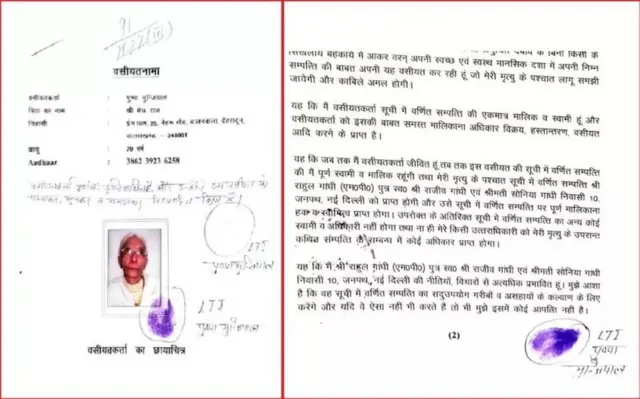 91
2022(III)
वसीयतनामा
वसीयतकर्ता : पुष्पा मुन्जियाल
पिता का नाम : श्री मेघ राज
निवासी : प्रेमधाम, 25, नेहरू रोड, डालनवाला देहरादून,
उत्तराखण्ड - 248001
आयु : 79 वर्ष
Aadhaar : 3862 3923 6258
LTI
LTI
वसीयतकर्ता का छायाचित्र
सिखलाये बहकाये में आकर वरन् अपनी स्वच्छ एवं स्वस्थ मानसिक दशा में अपनी निम्न
सम्पत्ति की बाबत अपनी यह वसीयत कर रही हूं जो मेरी मृत्यु के पश्चात लागू समझी
जायेगी और काबिले अमल होगी।
यह कि मैं वसीयतकर्ता सूची में वर्णित सम्पत्ति की एकमात्र मालिक व स्वामी हूं और
वसीयतकर्ता को इसकी बाबत समस्त मालिकाना अधिकार विक्रय, हस्तान्तरण, वसीयत
आदि करने के प्राप्त है।
यह कि जब तक मैं वसीयतकर्ता जीवित हूं तब तक इस वसीयत की सूची में वर्णित सम्पत्ति
की मैं पूर्ण स्वामी व मालिक रहूंगी तथा मेरी मृत्यु के पश्चात सूची में वर्णित सम्पत्ति श्री
राहुल गांधी (एम0पी0) पुत्र स्व0 श्री राजीव गांधी एवं श्रीमती सोनिया गांधी निवासी 10,
जनपथ, नई दिल्ली को प्राप्त होगी और उसे सूची में वर्णित सम्पत्ति पर पूर्ण मालिकाना
हक व स्वामित्व प्राप्त होगा। उपरोक्त के अतिरिक्त सूची में वर्णित सम्पत्ति का अन्य कोई
स्वामी व अधिकारी नहीं होगा तथा ना ही मेरे किसी उत्तराधिकारी को मेरी मृत्यु के उपरान्त
कथित सम्पत्ति के सम्बन्ध में कोई अधिकार प्राप्त होगा।
यह कि मैं श्री राहुल गांधी (एम0पी0) पुत्र स्व0 श्री राजीव गांधी एवं श्रीमती सोनिया गांधी
निवासी 10, जनपथ, नई दिल्ली की नीतियों, विचारों से अत्यधिक प्रभावित हूं। मुझे आशा
है कि वह सूची में वर्णित सम्पत्ति का सदुउपयोग गरीबों व असहायों के कल्याण के लिए
करेंगे और यदि वे ऐसा नहीं भी करते हैं तो भी मुझे इसमें कोई आपत्ति नहीं है।
(2)
LTI
पुष्पा